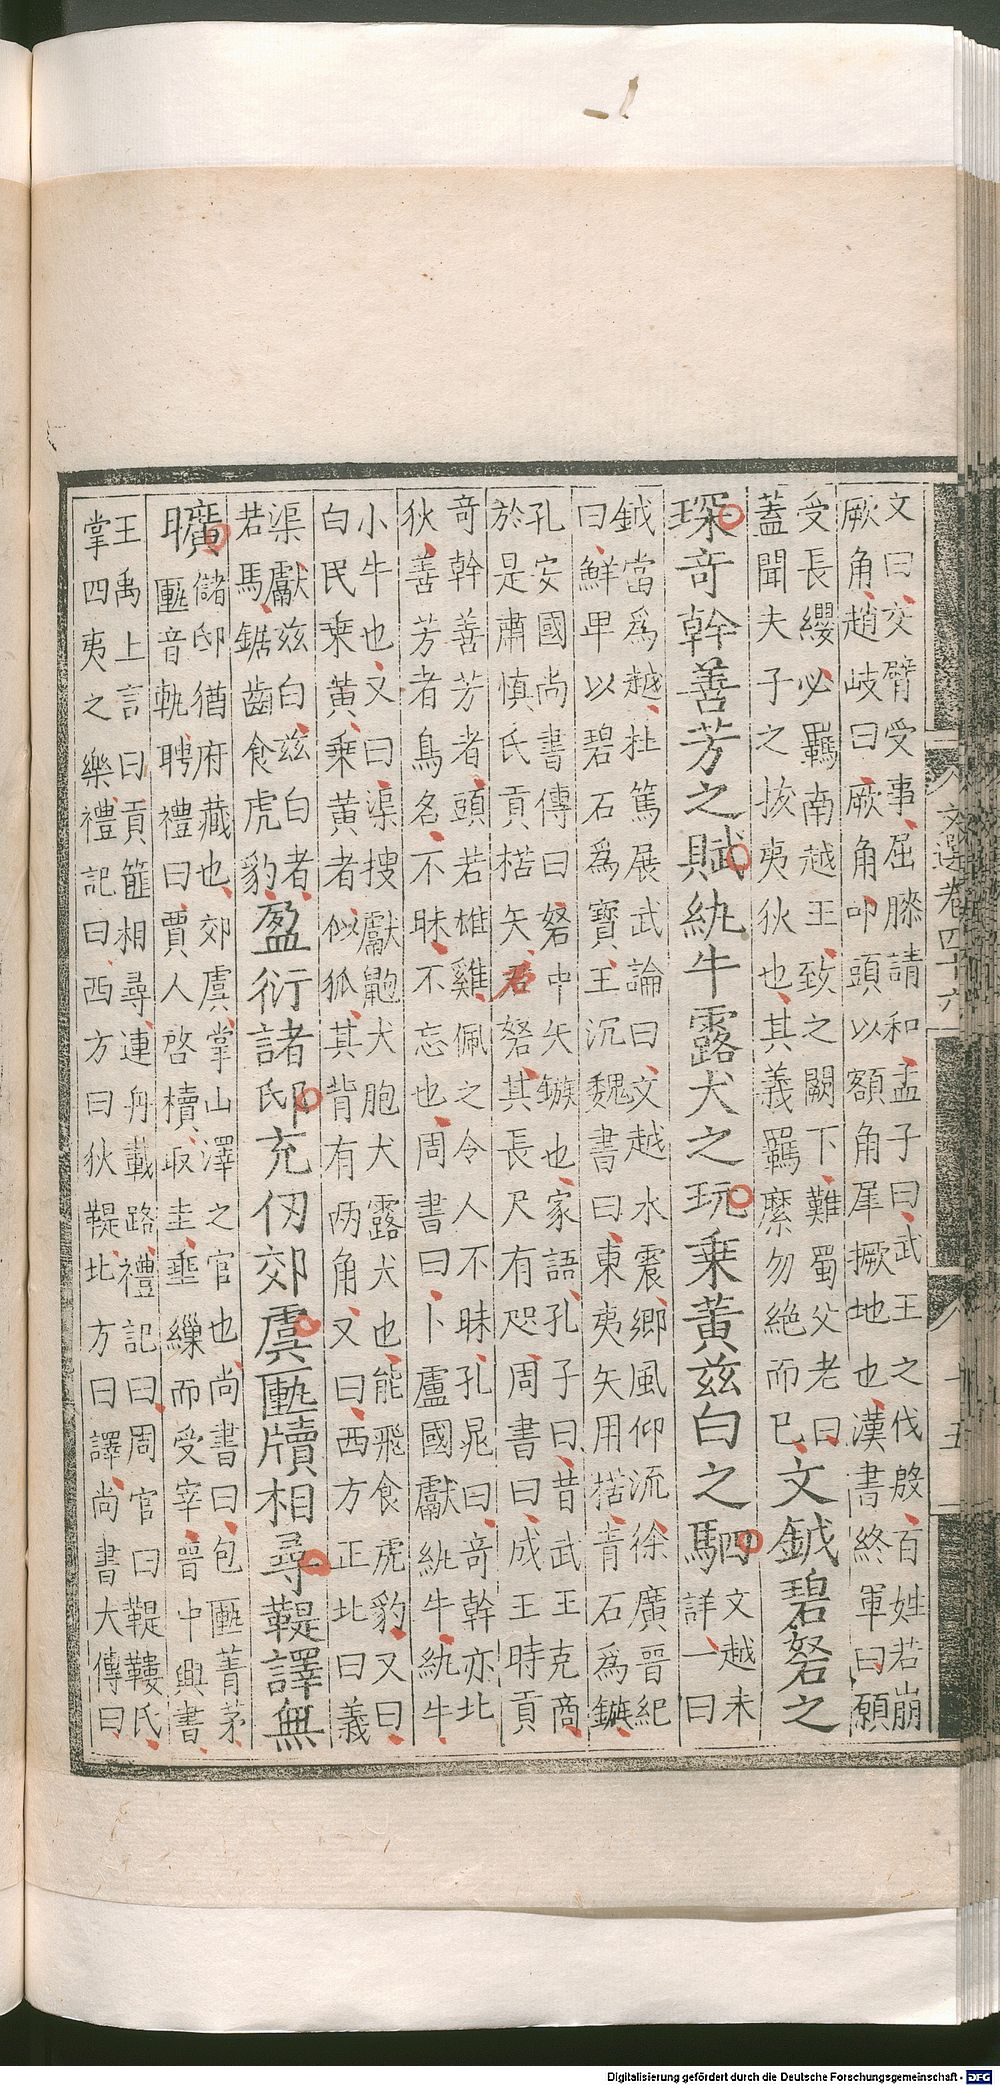 文選卷四十六
十五
文曰交臂受事屈膝請和孟子曰武王之伐殷百姓若崩
厥角趙岐曰厥角叩頭以額角犀撅地也漢書終軍曰願
受長纓必羈南越王致之闕下難蜀父老曰
蓋聞夫子之拔夷狄也其義羈縻勿絶而已
文鉞碧砮之
琛奇幹善芳之賦紈牛露犬之玩乗黄兹白之駟
文越未
詳一曰
鉞當爲越杜篤展武論曰文越水震鄉風仰流徐廣晉紀
曰鮮卑以碧石爲寶王沉魏書曰東夷矢用楛青石爲鏃
孔安國尚書傳曰砮中矢鏃也家語孔子曰昔武王克商
於是肅慎氏貢楛矢石砮其長尺有咫周書曰成王時貢
奇幹善芳者頭若雄雞佩之令人不昧孔晁曰奇幹亦北
狄善芳者鳥名不昧不忘也周書曰卜盧國獻紈牛紈牛
小牛也又曰渠搜獻鼩犬胞犬露犬也能飛食虎豹又曰
白民乗黄乗黄者似狐其背有两角又曰西方正北曰義
渠獻兹白兹白者
若馬鋸齒食虎豹
盈衍諸邸充仞郊虞匭牘相尋鞮譯無
曠
儲邸猶府藏也郊虞掌山澤之官也尚書曰包匭菁茅
匭音軌聘禮曰賈人啓櫝取圭垂繅而受宰晉中興書
王禹上言曰貢篚相尋連舟載路禮記曰周官曰鞮鞻氏
掌四夷之樂禮記曰西方曰狄鞮北方曰譯尚書大傳曰
Digitalisierung gefördert durch die Deutsche Forschungsgemeinschaft - DFG